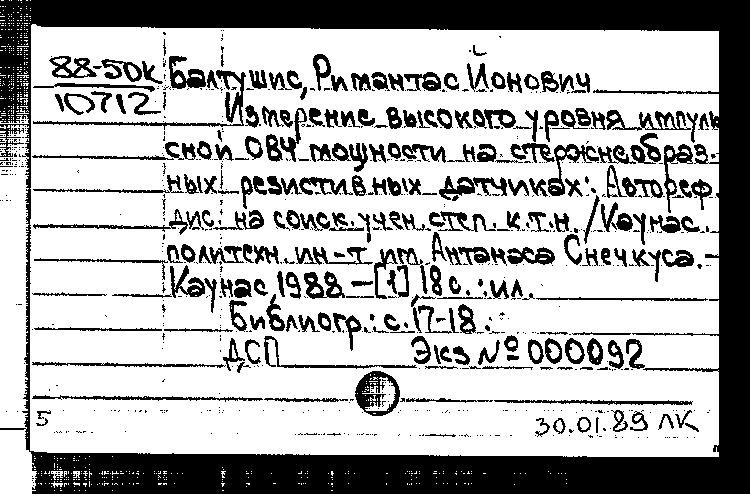 88-50К Балтушис, Римантас Йонович
10712 Измерение высокого уровня импуль
сной ОВЧ мощности на стержнеобраз-
ных резистивных датчиках: Автореф.
дис. на соиск. учен. степ. к.т.н. / Каунас.
политехн. ин-т им. Антанаса Снечкуса. –
Каунас, 1988 – [1], 18 с. : ил.
Библиогр.: с. 17-18.
ДСП Экз № 000092
5 30.01.89 ЛК